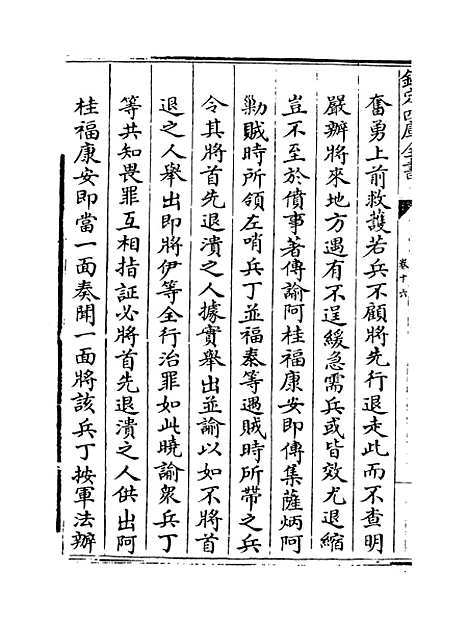 欽定四庫全書
卷十六
奮勇上前救護若兵不顧將先行退走此而不查明
嚴辦將來地方遇有不逞緩急需兵或皆效尤退縮
豈不至於僨事著傳諭阿桂福康安即傳集薩炳阿
勦賊時所領左哨兵丁並福泰等遇賊時所帶之兵
令其將首先退潰之人據實舉出並諭以如不將首
退之人舉出即將伊等全行治罪如此曉諭衆兵丁
等共知畏罪互相指証必將首先退潰之人供出阿
桂福康安即當一面奏聞一面將該兵丁按軍法辦